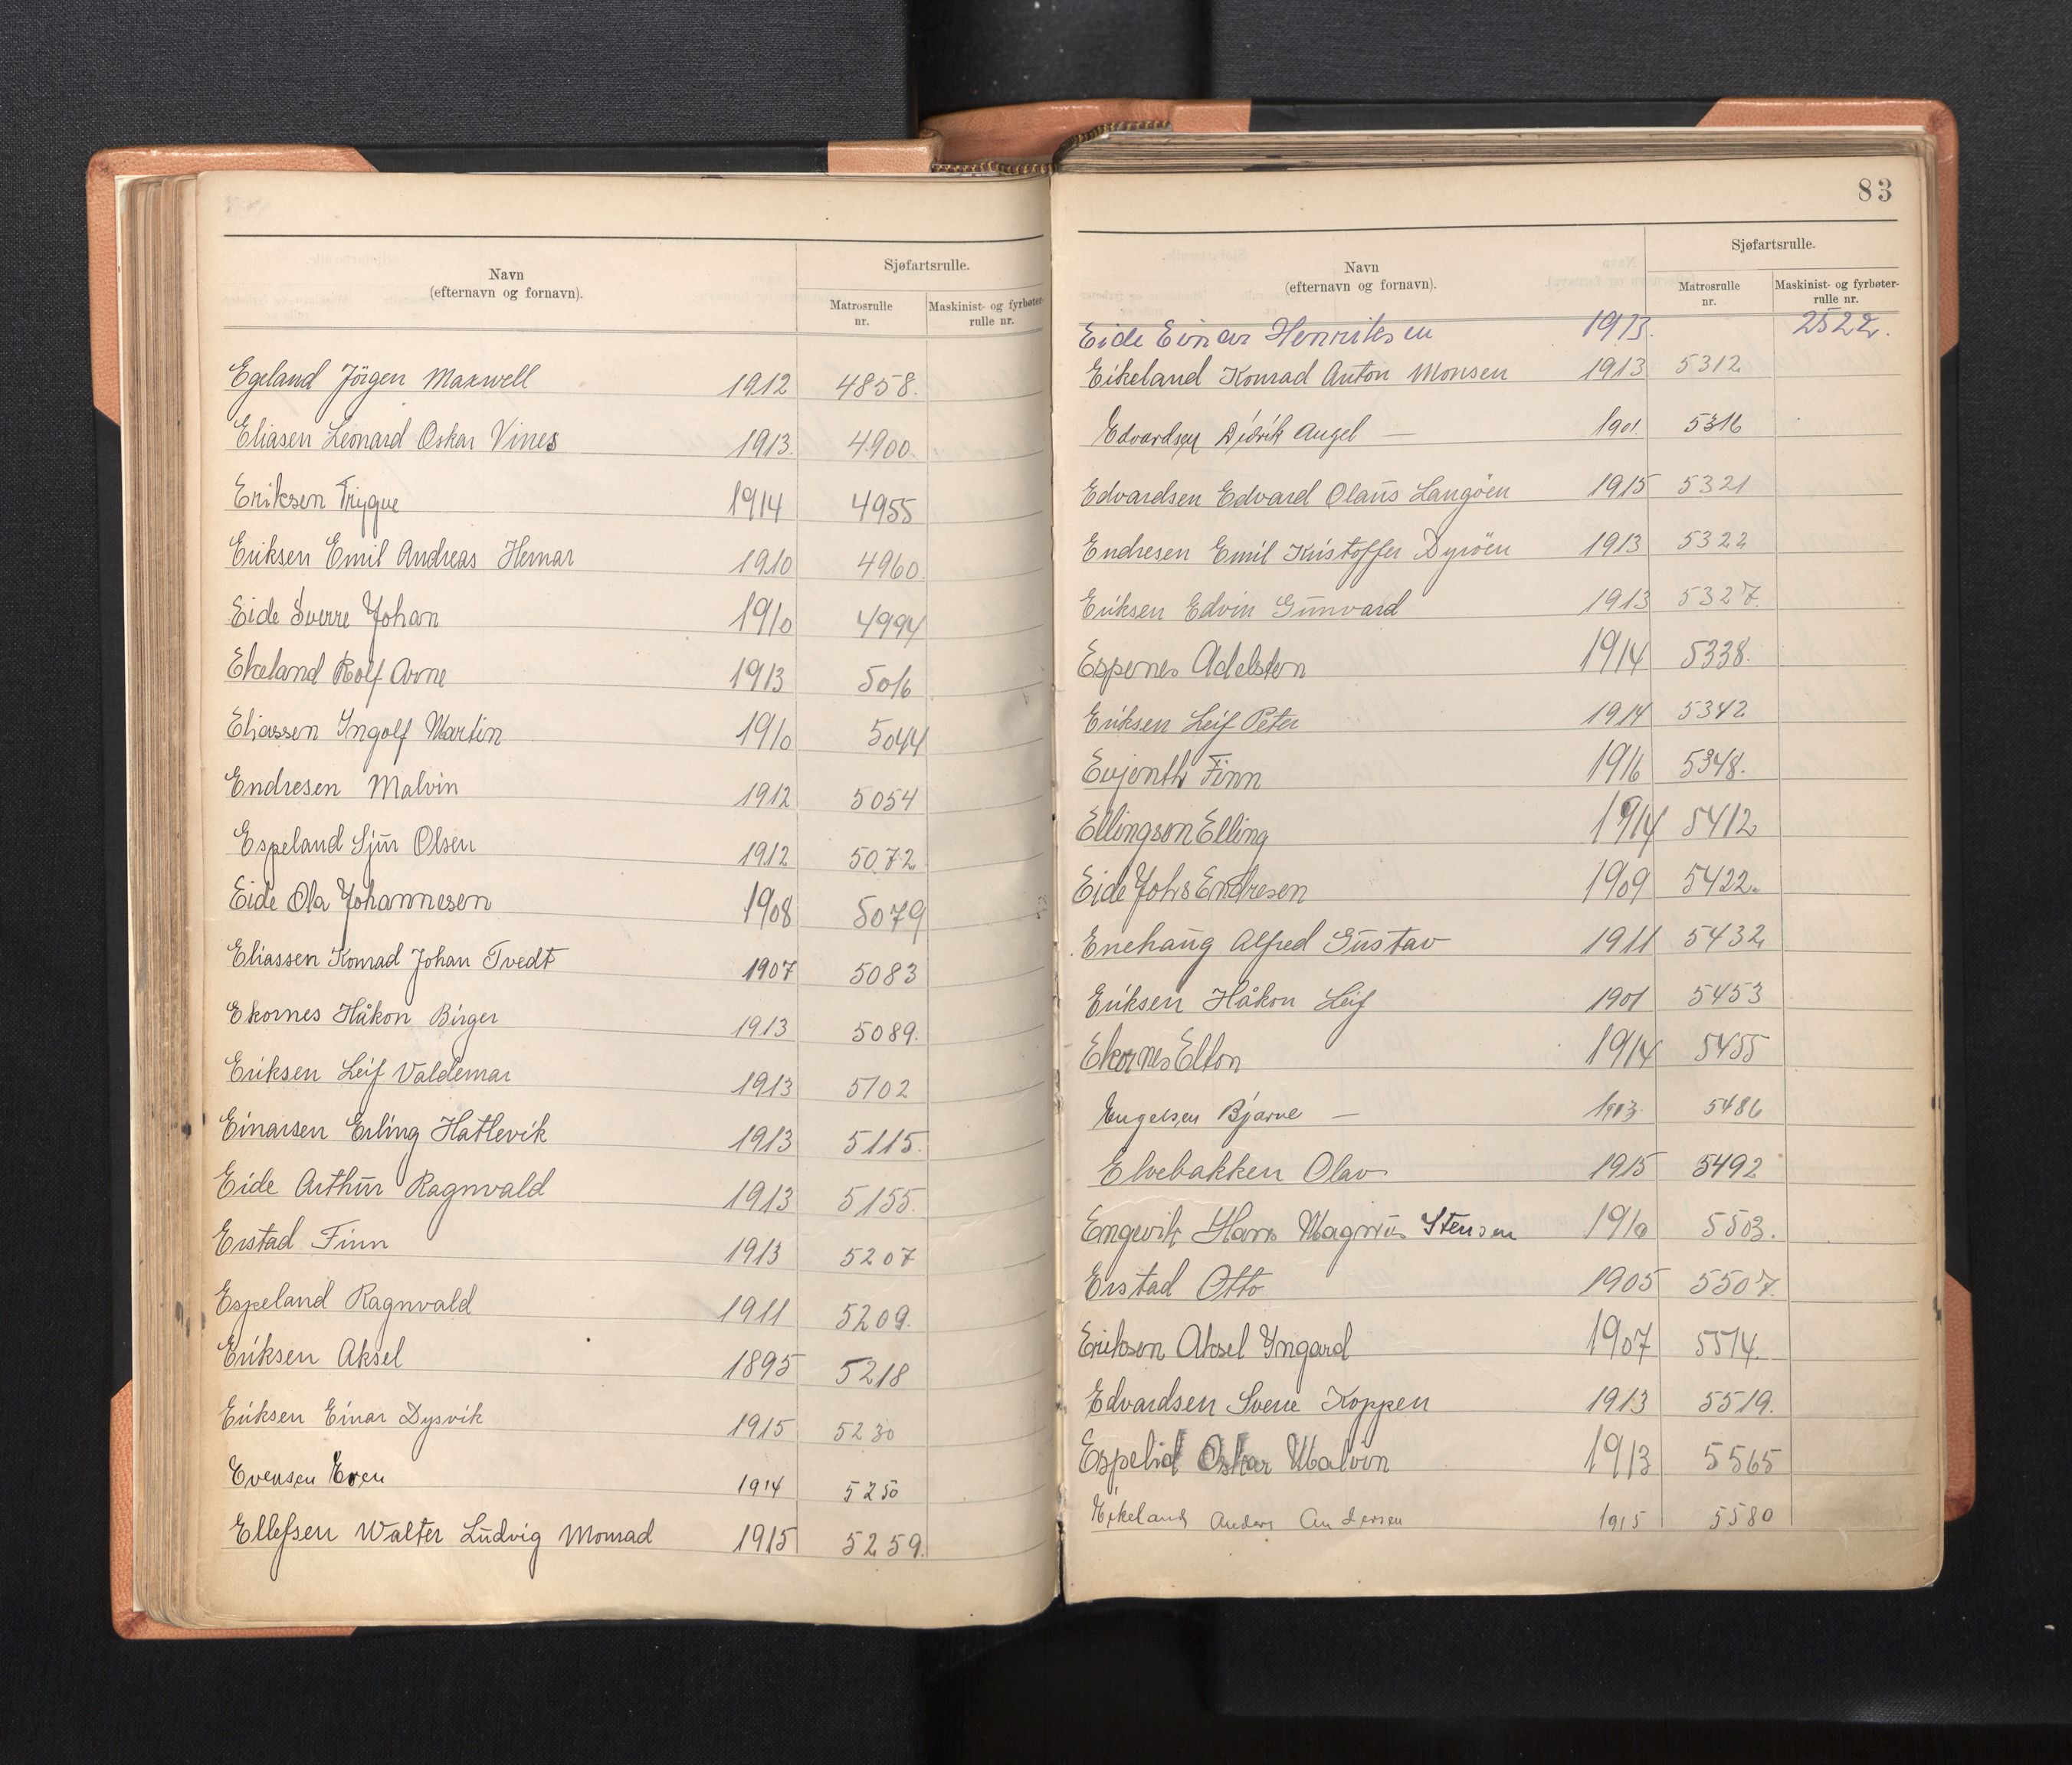 Navn
(efternavn og fornavn).
Sjøfartsrulle.
Matrosrulle
nr.
Maskinist- og fyrbøter-
rulle nr.
Egeland Jörgen Maxwell 1912 4858.
Eliasen Leonard Oskar Vines 1913. 4900.
Eriksen Trygve 1914 4955
Eriksen Emil Andreas Hernar 1910 4960.
Eide Sverre Johan 1910 4994
Ekeland Rolf Arne 1913 5016
Eliassen Ingolf Martin 1910 5044
Endresen Malvin 1912 5054
Espeland Sjur Olsen 1912 5072
Eide Ola Johannesen 1908 5079
Eliassen Konrad Johan Tvedt 1907 5083
Ekornes Håkon Birger 1913 5089.
Eriksen Leif Valdemar 1913 5102
Einarsen Erling Hatlevik 1913 5115.
Eide Arthur Ragnvald 1913 5155.
Erstad Finn 1913 5207
Espeland Ragnvald 1911 5209.
Eriksen Aksel 1895 5218
Eriksen Einar Dysvik 1915 5230
Evensen Even 1914 5250
Ellefsen Walter Ludvig Monrad 1915 5259.
83
Navn
(efternavn og fornavn).
Sjøfartsrulle.
Matrosrulle
nr.
Maskinist- og fyrbøter-
rulle nr.
Eide Einar Henriksen 1913. 2522.
Eikeland Konrad Anton Monsen 1913 5312
Edvardsen Didrik Angel — 1901. 5316
Edvardsen Edvard Olaus Langöen 1915 5321
Endresen Emil Kristoffer Dyröen 1913 5322
Eriksen Edvin Gunvard 1913 5327.
Espenes Adelsten 1914 5338.
Eriksen Leif Peter 1914 5342
Evjenth Finn 1916 5348.
Ellingsen Elling 1914 5412
Eide Johs Endresen 1909 5422.
Enehaug Alfred Gustav 1911 5432
Eriksen Håkon Leif 1901 5453
Ekornes Elton 1914 5455
Engelsen Bjarne — 1913. 5486
Elvebakken Olav 1915 5492
Engevik Hans Magnus Stensen 1910 5503.
Erstad Otto 1905 5507.
Eriksen Aksel Yngard 1907 5514.
Edvardsen Sverre Koppen 1913 5519.
Espelid Oskar Malvin 1913 5565
Eikeland Anders Andersen 1915 5580